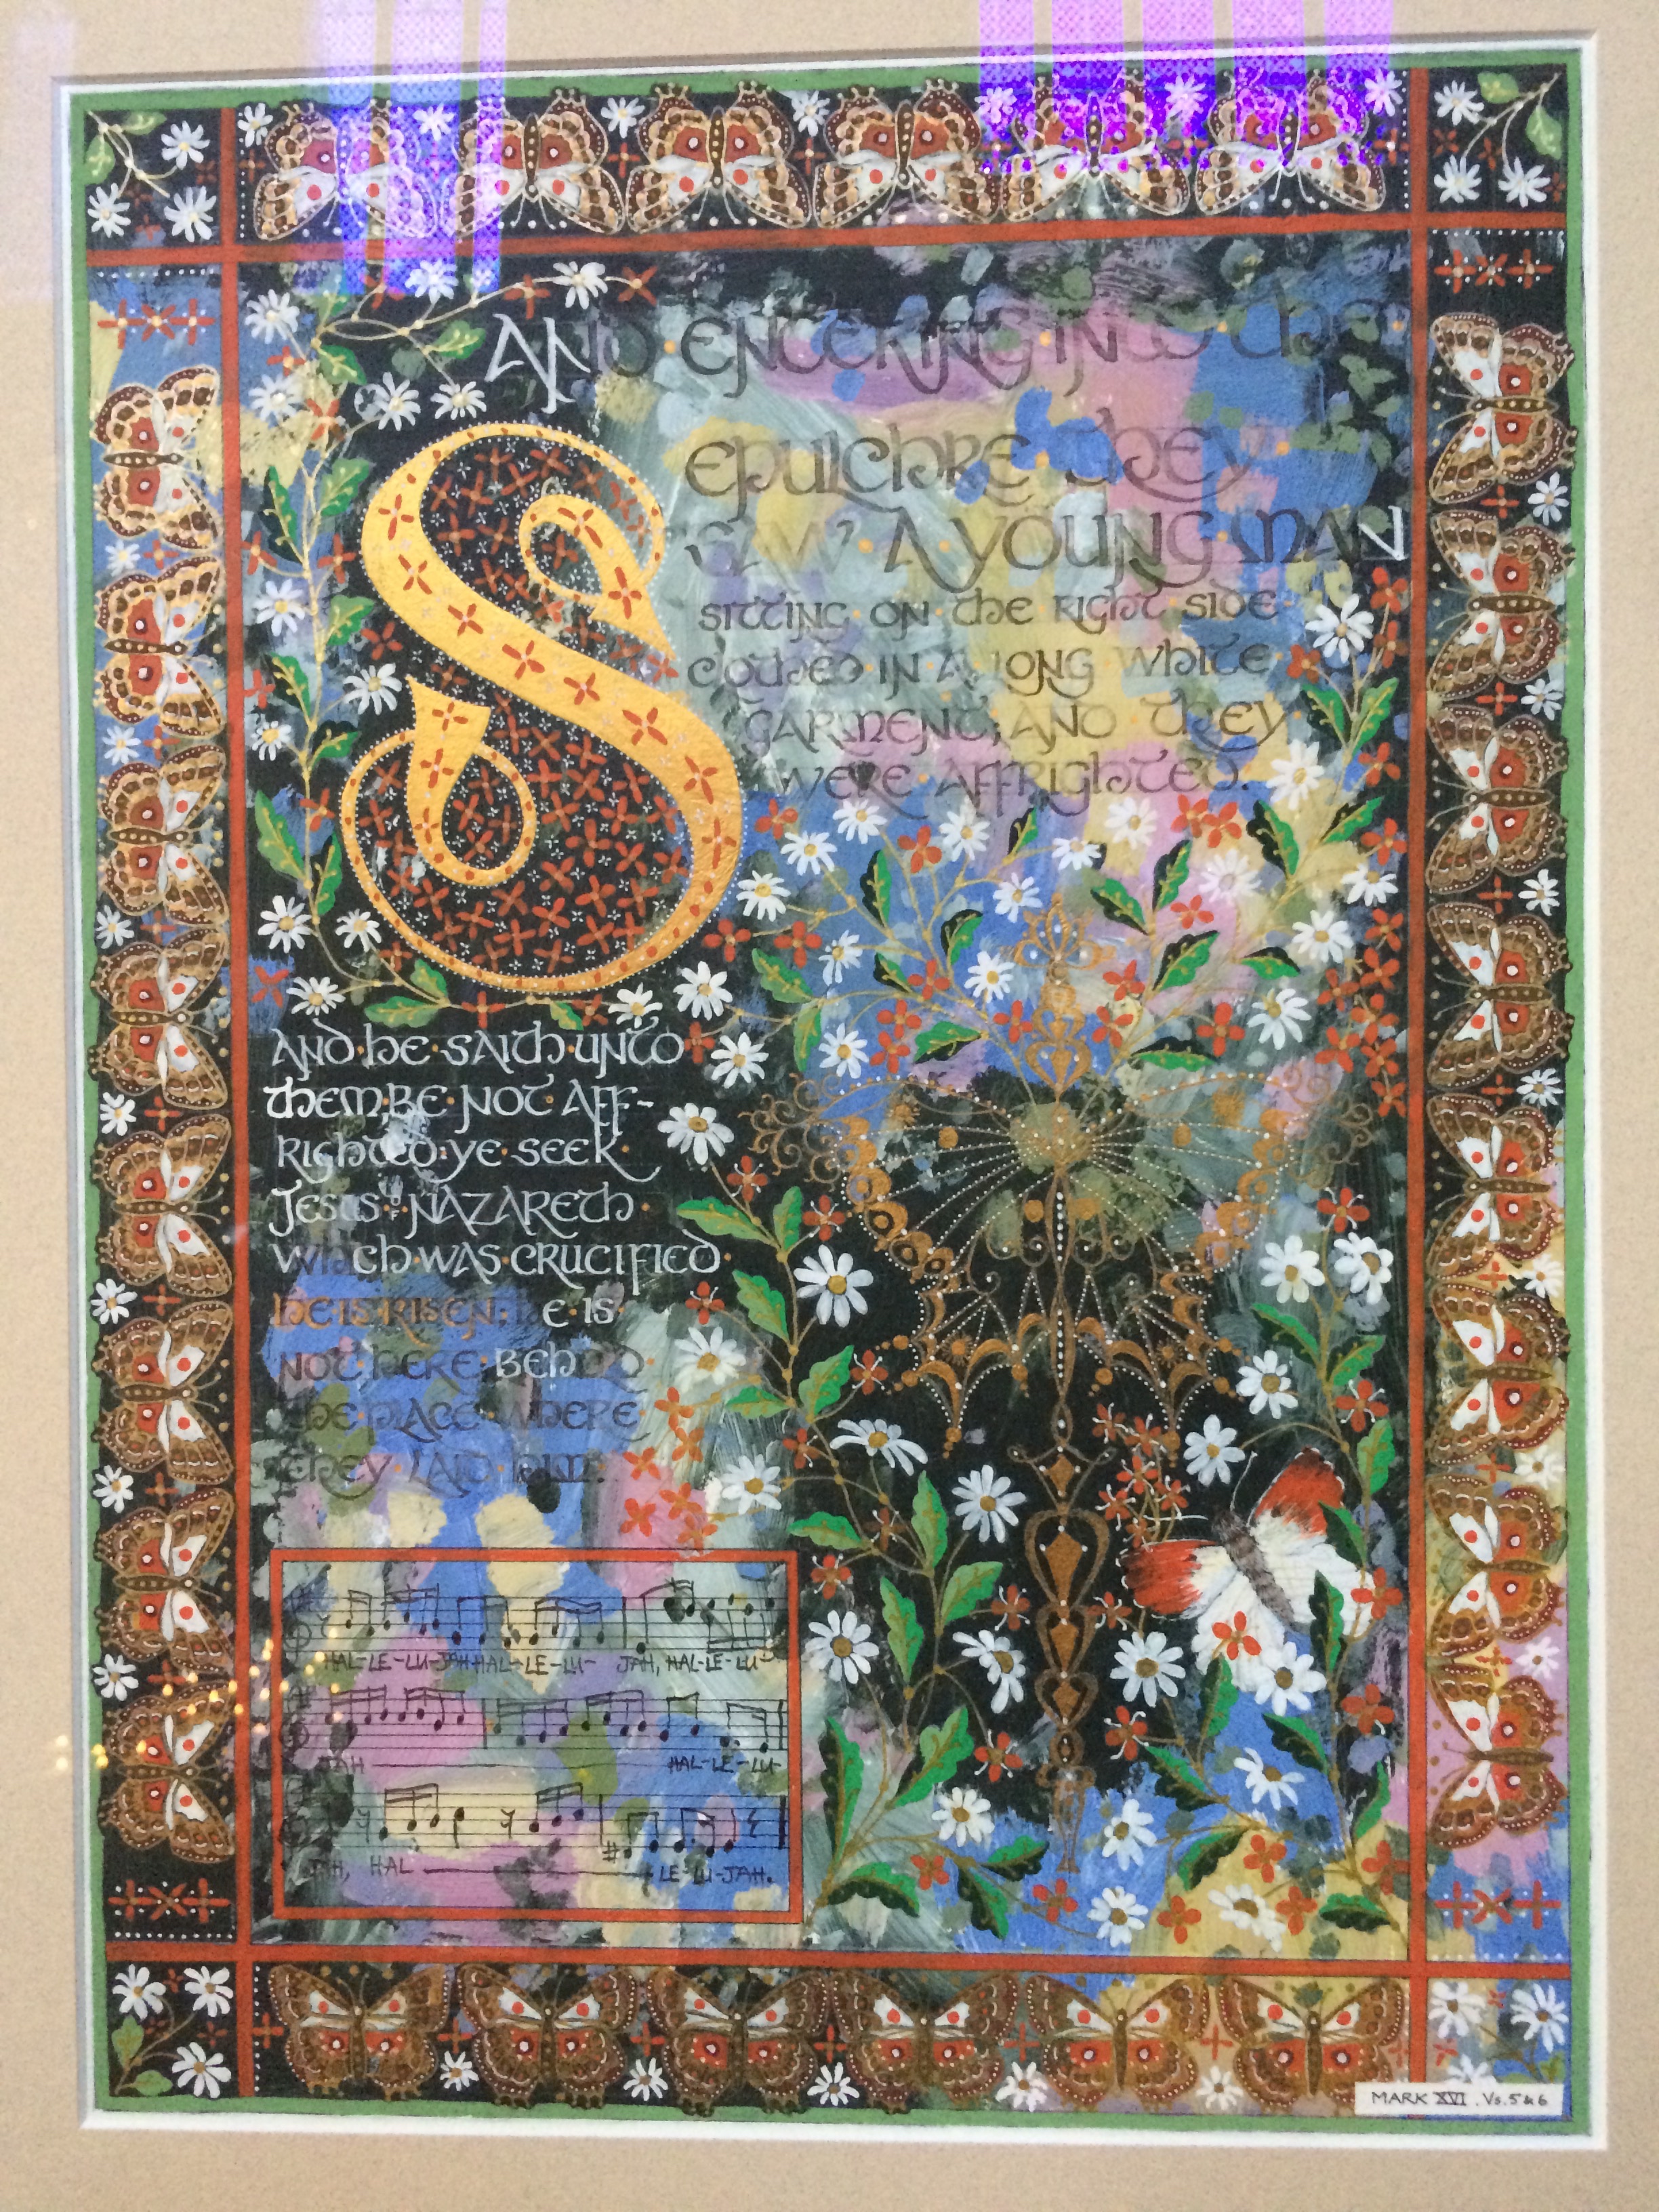 AND · ENTERING · INTO THE
SEPULCHRE THEY
SAW · A · YOUNG · MAN
SITTING · ON · THE · RIGHT · SIDE
CLOTHED · IN · A · LONG WHITE
GARMENT; AND THEY
WERE AFFRIGHTED.
AND · HE · SAITH · UNTO
THEM · BE · NOT · AFF-
RIGHTED: YE · SEEK ·
JESUS OF NAZARETH ·
WHICH · WAS · CRUCIFIED ·
HE IS RISEN; HE · IS ·
NOT HERE: BEHOLD ·
THE · PLACE · WHERE ·
THEY · LAID HIM.
HAL-LE-LU-JAH HAL-LE-LU- JAH, HAL-LE-LU-
JAH HAL-LE-LU-
JAH, HAL LE-LU-JAH.
MARK XVI . Vs. 5 & 6